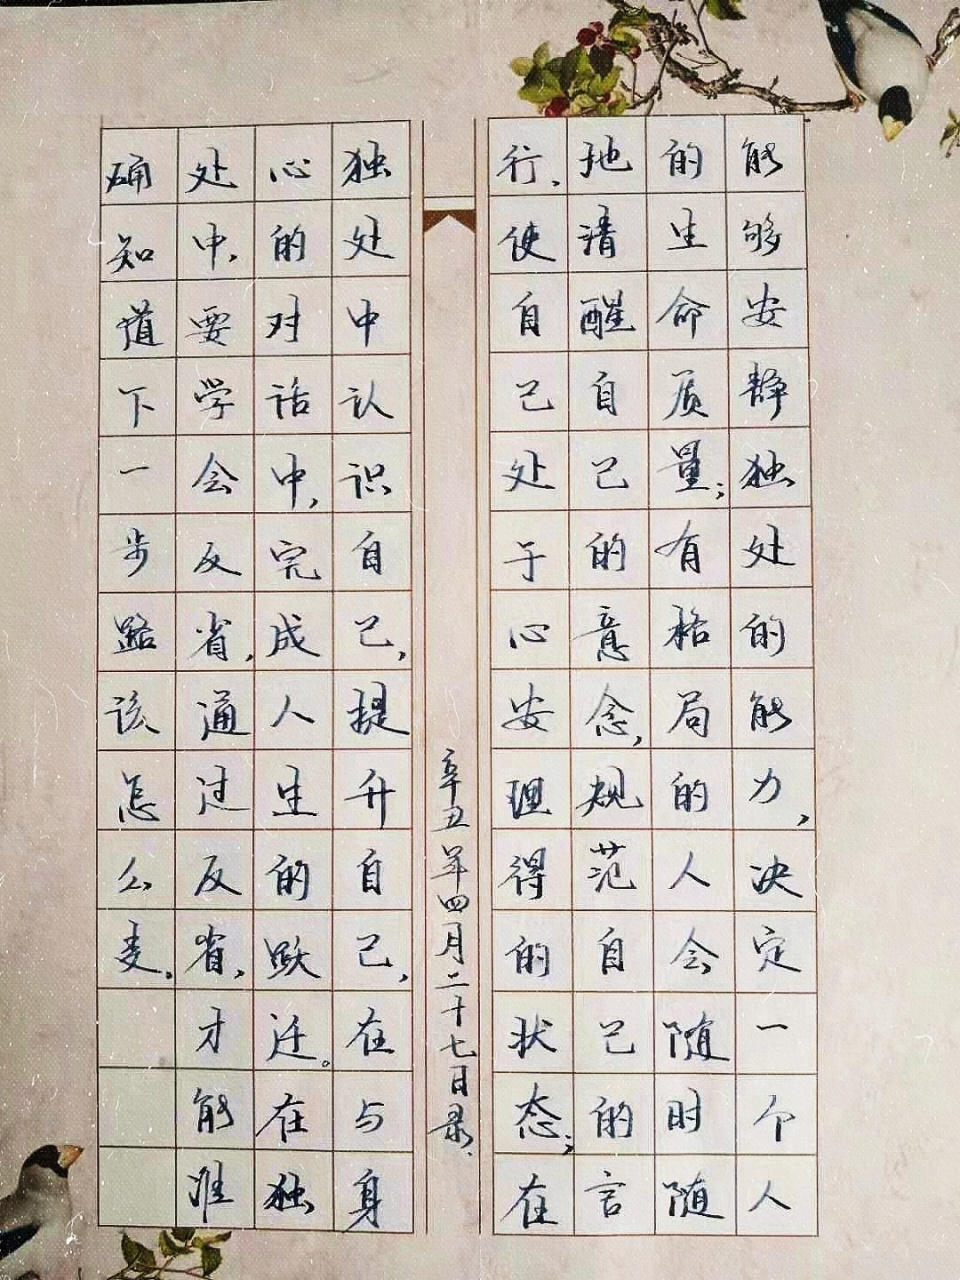 能够安静独处的能力,决定一个人
的生命质量;有格局的人会随时随
地清醒自己的意念,规范自己的言
行,使自己处于心安理得的状态;在
独处中认识自己,提升自己,在与身
心的对话中,完成人生的跃迁。在独
处中,要学会反省,通过反省,才能准
确知道下一步路该怎么走。
辛丑年四月二十七日录.